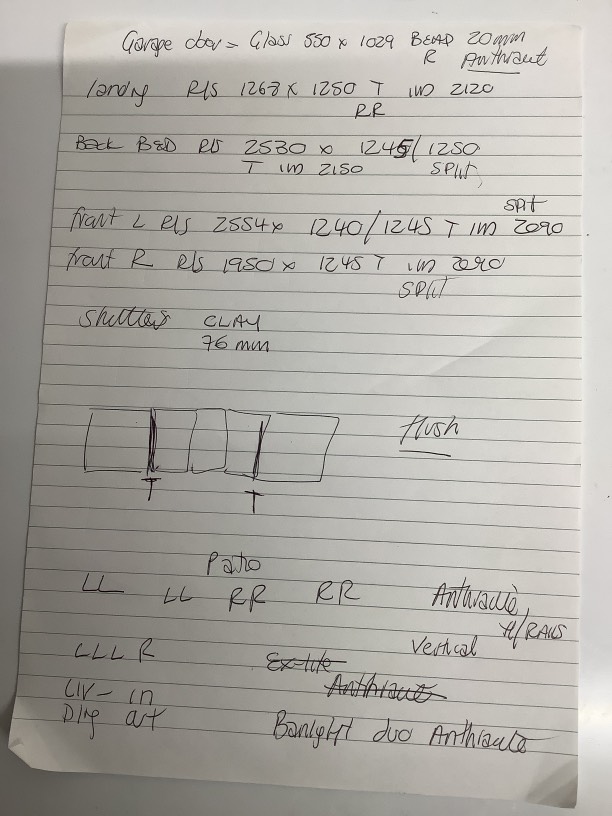 Garage door = Glass 550 x 1029 BEAD 20mm
R Anthraut
landg R/s 1268 x 1250 T IM 2120
RR
Back BED R/s 2530 x 1245/1250
T IM 2150 SPlit
split
front L R/s 2554 x 1240/1245 T IM 2090
front R R/s 1950 x 1245 T IM 2090
SPlit
Shutters CLAY
76 mm
flush
T T
Patio
LL LL RR RR Anthracite
H/RAILS
LLL R Vertical
Liv - in
Dig out
Banlight duo Anthracite